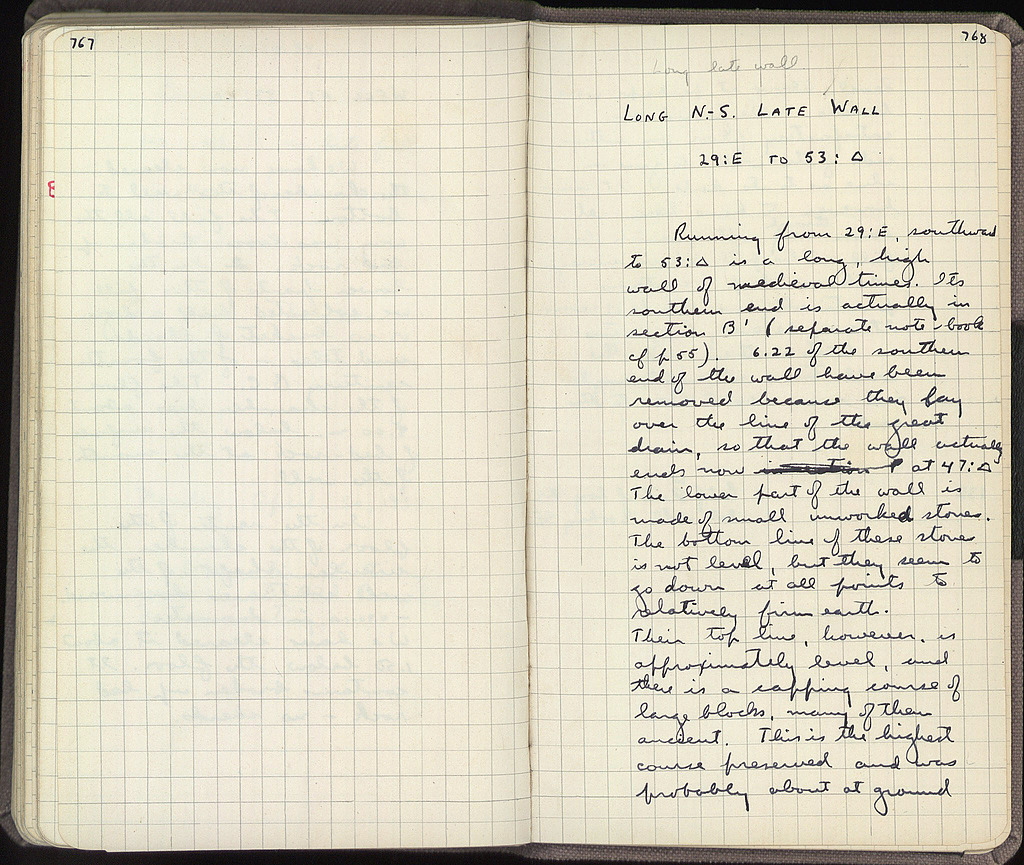 767
768
Long late wall
LONG N.-S. LATE WALL
29:E TO 53:Δ
Running from 29:E, southward
to 53:Δ is a long, high
wall of medieval times. Its
southern end is actually in
section B' (separate note-book
cf p 55). 6.22 of the southern
end of the wall have been
removed because they lay
over the line of the great
drain, so that the wall actually
ends now at 47:Δ
The lower part of the wall is
made of small unworked stones.
The bottom line of these stones
is not level, but they seem to
go down at all points to
relatively firm earth.
Their top line, however, is
approximately level, and
there is a capping course of
large blocks, many of them
ancient. This is the highest
course preserved and was
probably about at ground